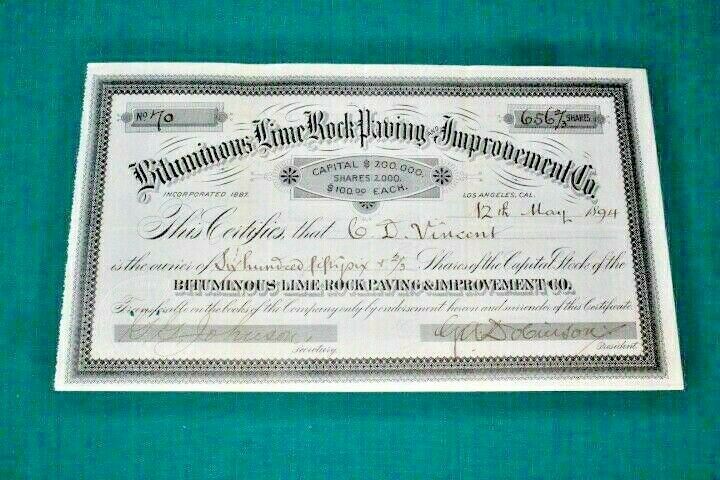 No 70
656 2/3 SHARES
Bituminous Lime Rock Paving and Improvement Co.
CAPITAL $ 200,000.
SHARES 2,000.
$100.00 EACH.
INCORPORATED 1887.
LOS ANGELES, CAL.
12th May 1894
This Certifies, that C D. Vincent
is the owner of Six hundred fifty six & 2/3 Shares of the Capital Stock of the
BITUMINOUS LIME ROCK PAVING & IMPROVEMENT CO.
Transferable on the books of the Company only by endorsement hereon and surrender of this Certificate
Johnson
Secretary.
G A Dobinson
President.